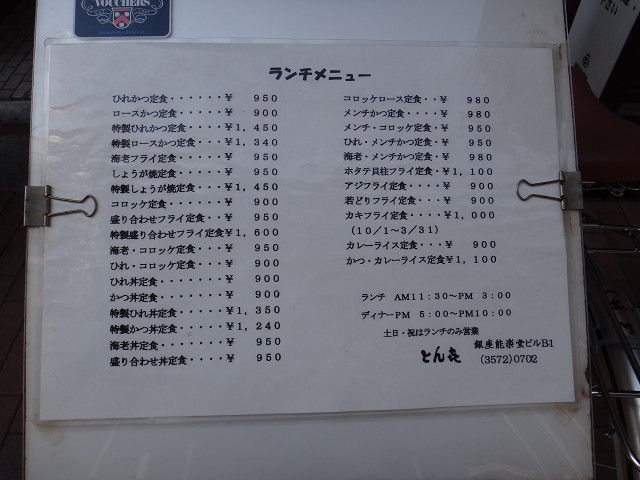 VOUCHERS
ランチメニュー
ひれかつ定食・・・・・・￥ 950
ロースかつ定食・・・・・￥ 900
特製ひれかつ定食・・・・￥1,450
特製ロースかつ定食・・・￥1,340
海老フライ定食・・・・・￥ 950
しょうが焼定食・・・・・￥ 950
特製しょうが焼定食・・・￥1,450
コロッケ定食・・・・・・￥ 900
盛り合わせフライ定食・・￥ 950
特製盛り合わせフライ定食￥1,600
海老・コロッケ定食・・・￥ 950
ひれ・コロッケ定食・・・￥ 900
ひれ丼定食・・・・・・・￥ 900
かつ丼定食・・・・・・・￥ 900
特製ひれ丼定食・・・・・￥1,350
特製かつ丼定食・・・・・￥1,240
海老丼定食・・・・・・・￥ 950
盛り合わせ丼定食・・・・￥ 950
コロッケロース定食・・￥ 980
メンチかつ定食・・・・￥ 900
メンチ・コロッケ定食・￥ 950
ひれ・メンチかつ定食・￥ 950
海老・メンチかつ定食・￥ 980
ホタテ貝柱フライ定食・￥1,100
アジフライ定食・・・・￥ 900
若どりフライ定食・・・￥ 900
カキフライ定食・・・・￥1,000
(10/1~3/31)
カレーライス定食・・・￥ 900
かつ・カレーライス定食￥1,100
ランチ AM11:30~PM 3:00
ディナーPM 5:00~PM10:00
土日・祝はランチのみ営業
とん㐂 銀座能楽堂ビルB1
(3572)0702